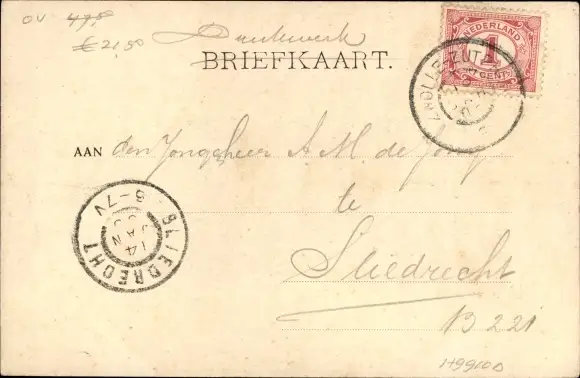 OV 47,50
€ 21,50
Drukwerk
BRIEFKAART.
NEDERLAND
1
CENT
ZWOLLE-ZUTP
AAN den Jongeheer A M de Jong
te
SLIEDRECHT
14
JAN
6-7V
Sliedrecht
B 221